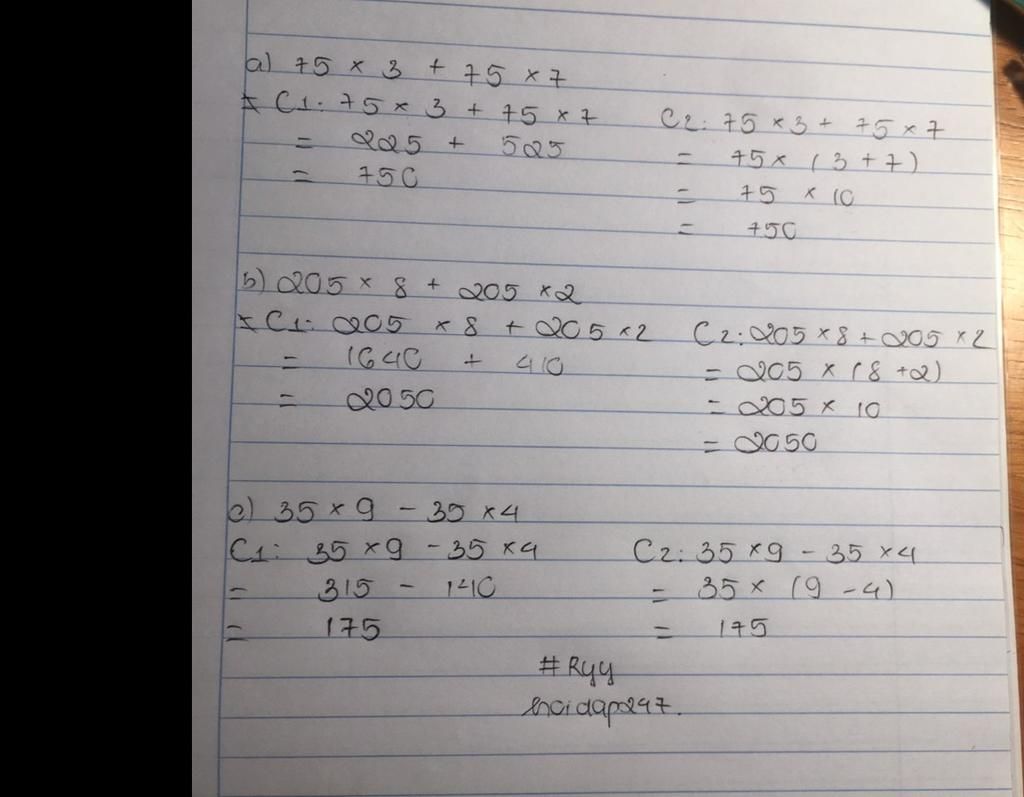 a) 75 × 3 + 75 × 7
* C1: 75 × 3 + 75 × 7
= 225 + 525
= 750
C2: 75 × 3 + 75 × 7
= 75 × (3 + 7)
= 75 × 10
= 750
b) 205 × 8 + 205 × 2
* C1: 205 × 8 + 205 × 2
= 1640 + 410
= 2050
C2: 205 × 8 + 205 × 2
= 205 × (8 + 2)
= 205 × 10
= 2050
c) 35 × 9 - 35 × 4
C1: 35 × 9 - 35 × 4
= 315 - 140
= 175
C2: 35 × 9 - 35 × 4
= 35 × (9 - 4)
= 175
#Ryy
hoidap247.